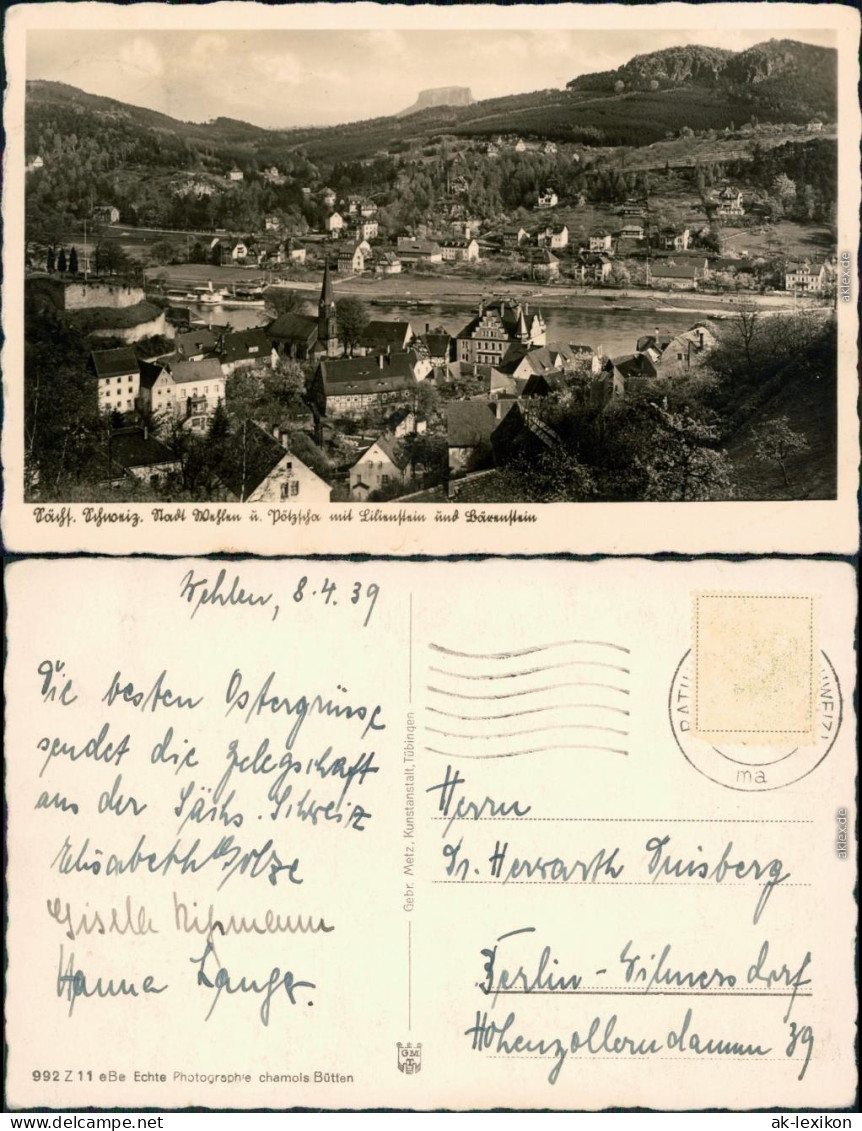 Sächs. Schweiz. Stadt Wehlen u. Pötzscha mit Lilienstein und Bärenstein
Wehlen, 8.4.39
Die besten Ostergrüsse
sendet die Gefolgschaft
aus der Sächs. Schweiz
Elisabeth Golze
Gisela
Hanna Lange.
992 Z 11 eBe Echte Photographie chamois Bütten
Gebr. Metz, Kunstanstalt, Tübingen
GM
ma
Herrn
Dr. Herwarth Duisberg
Berlin-Wilmersdorf
Hohenzollerndamm 39
aklex.de
aklex.de
© aklex.de
ak-lexikon